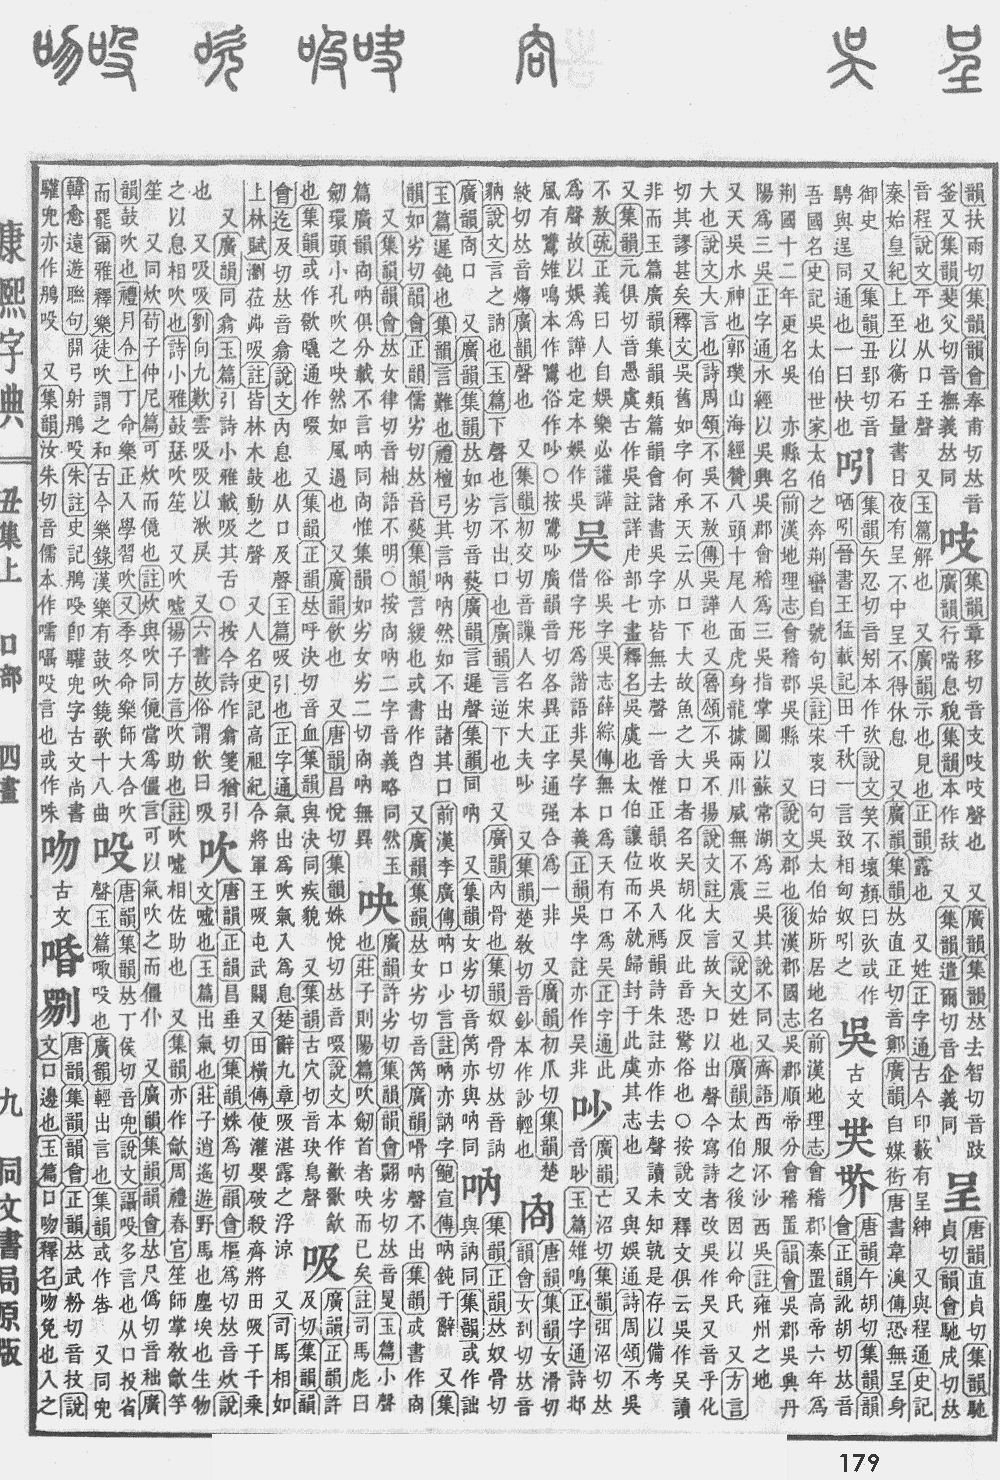 呈 吳 㕯 㕭 吸 吹 吺 吻
韻扶雨切集韻韻會奉甫切𠀤音
釜又集韻斐父切音撫義𠀤同
吱
集韻章移切音支吱吱聲也 又廣韻集韻𠀤去智切音跂
廣韻行喘息貌集韻本作 又集韻遣爾切音企義同
呈
唐韻直貞切集韻馳
貞切韻會馳成切𠀤
音程說文平也从口壬聲 又玉篇解也 又廣韻示也見也正韻露也 又姓正字通古今印藪有呈紳 又與程通史記
秦始皇紀上至以衡石量書日夜有呈不中呈不得休息 又廣韻集韻𠀤直正切音鄭廣韻自媒衒唐書韋澳傳恐無呈身
御史 又集韻丑郢切音
騁與逞同通也一曰快也
吲
集韻矢忍切音矧本作弞說文笑不壞顏曰弞或作
哂吲晉書王猛載記田千秋一言致相匈奴吲之
吳
古文

唐韻午胡切集韻韻
會正韻訛胡切𠀤音
吾國名史記吳太伯世家太伯之奔荆蠻自號句吳註宋衷曰句吳太伯始所居地名前漢地理志會稽郡秦置高帝六年爲
荆國十二年更名吳 亦縣名前漢地理志會稽郡吳縣 又說文郡也後漢郡國志吳郡順帝分會稽置韻會吳郡吳興丹
陽爲三吳正字通水經以吳興吳郡會稽爲三吳指掌圖以蘇常湖爲三吳其說不同又齊語西服流沙西吳註雍州之地
又天吳水神也郭璞山海經贊八頭十尾人面虎身龍據兩川威無不震 又說文姓也廣韻太伯之後因以命氏 又方言
大也說文大言也詩周頌不吳不敖傳吳譁也又魯頌不吳不揚說文註大言故矢口以出聲今寫詩者改吳作吴又音乎化
切其謬甚矣釋文吳舊如字何承天云从口下大故魚之大口者名吳胡化反此音恐驚俗也○按說文釋文俱云吳作吴讀
非而玉篇廣韻集韻類篇韻會諸書吳字亦皆無去聲一音惟正韻收吳入禡韻詩朱註亦作去聲讀未知孰是存以備考
又集韻元俱切音愚虞古作吳註詳虍部七畫釋名吳虞也太伯讓位而不就歸封于此虞其志也 又與娛通詩周頌不吳
不敖疏正義曰人自娛樂必讙譁
爲聲故以娛爲譁也定本娛作吳
吴
俗吳字吳志薛綜傳無口爲天有口爲吴正字通此
借字形爲諧語非吴字本義正韻吳字註亦作吴非
吵
廣韻亡沼切集韻弭沼切𠀤
音眇玉篇雉鳴正字通詩邶
風有鷕雉鳴本作鷕俗作吵○按鷕吵廣韻音切各異正字通强合爲一非 又廣韻初爪切集韻楚
絞切𠀤音煼廣韻聲也 又集韻初交切音謤人名宋太夫吵 又集韻楚敎切音鈔本作訬輕也
㕯
唐韻集韻女滑切
韻會女刮切𠀤音
豽說文言之訥也玉篇下聲也言不出口也廣韻言逆下也 又廣韻內骨也集韻奴骨切𠀤音訥
廣韻㕯口 又廣韻集韻𠀤如劣切音爇廣韻言遲聲集韻同吶 又集韻女劣切音䓆亦與吶同
吶
集韻正韻𠀤奴骨切
與訥同集韻或作詘
玉篇遲鈍也集韻言難也禮檀弓其言吶吶然如不出諸其口前漢李廣傳吶口少言註吶亦訥字鮑宣傳吶鈍于辭 又集
韻如劣切韻會正韻儒劣切𠀤音爇集韻言緩也或書作㕯 又廣韻集韻𠀤女劣切音䓆廣韻㗂吶聲不出集韻或書作㕯
又集韻韻會𠀤女律切音柮語不明○按㕯吶二字音義略同然玉
篇廣韻㕯吶俱分載不言吶同㕯惟集韻如劣女劣二切㕯吶無異
吷
廣韻許劣切集韻韻會翾劣切𠀤音 玉篇小聲
也莊子則陽篇吹劒首者吷而已矣註司馬彪曰
劒環頭小孔吹之吷然如風過也 又廣韻飮也 又唐韻昌悅切集韻姝悅切𠀤音啜說文本作歠歠歙
也集韻或作歠嚽通作啜 又集韻正韻𠀤呼決切音血集韻與決同疾貌 又集韻古穴切音玦鳥聲
吸
廣韻正韻許
及切集韻韻
會迄及切𠀤音翕說文內息也从口及聲玉篇吸引也正字通氣出爲吹氣入爲息楚辭九章吸湛露之浮涼 又司馬相如
上林賦瀏莅芔吸註皆林木鼓動之聲 又人名史記高祖紀令將軍王吸屯武關又田橫傳使灌嬰破殺齊將田吸于千乗
又廣韻同翕玉篇引詩小雅載吸其舌○按今詩作翕箋猶引
也 又吸吸劉向九歎雲吸吸以湫戾 又六書故俗謂飮曰吸
吹
唐韻正韻昌垂切集韻姝爲切韻會樞爲切𠀤音炊說
文噓也玉篇出氣也莊子逍遙遊野馬也塵埃也生物
之以息相吹也詩小雅鼓瑟吹笙 又吹噓揚子方言吹助也註吹噓相佐助也 又集韻亦作龡周禮春官笙師掌敎龡竽
笙 又同炊荀子仲尼篇可炊而傹也註炊與吹同傹當爲僵言可以氣吹之而僵仆 又廣韻集韻韻會𠀤尺僞切音䊼廣
韻鼓吹也禮月令上丁命樂正入學習吹又季冬命樂師大合吹
而罷爾雅釋樂徒吹謂之和古今樂錄漢樂有鼓吹鐃歌十八曲
吺
唐韻集韻𠀤丁侯切音兜說文讘吺多言也从口投省
聲玉篇㘐吺也廣韻輕出言也集韻或作呰 又同兜
韓愈遠遊聯句開弓射鴅吺朱註史記鴅吺卽驩兜字古文尚書
驩兜亦作鴅吺 又集韻汝朱切音儒本作嚅囁吺言也或作咮
吻
古
文

唐韻集韻韻會正韻𠀤武粉切音抆說
文口邊也玉篇口吻釋名吻免也入之
康熙字典 丑集上 口部 四畫 九 同文書局原版
179